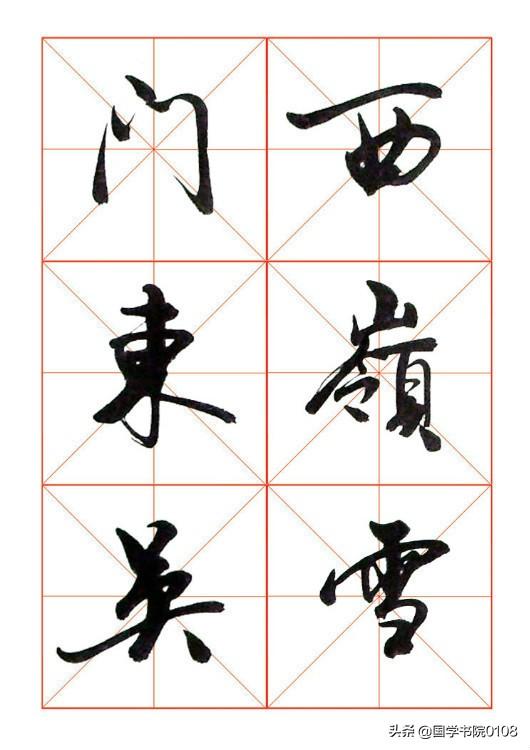 西嶺雪
门東吴
头条 @国学书院0108